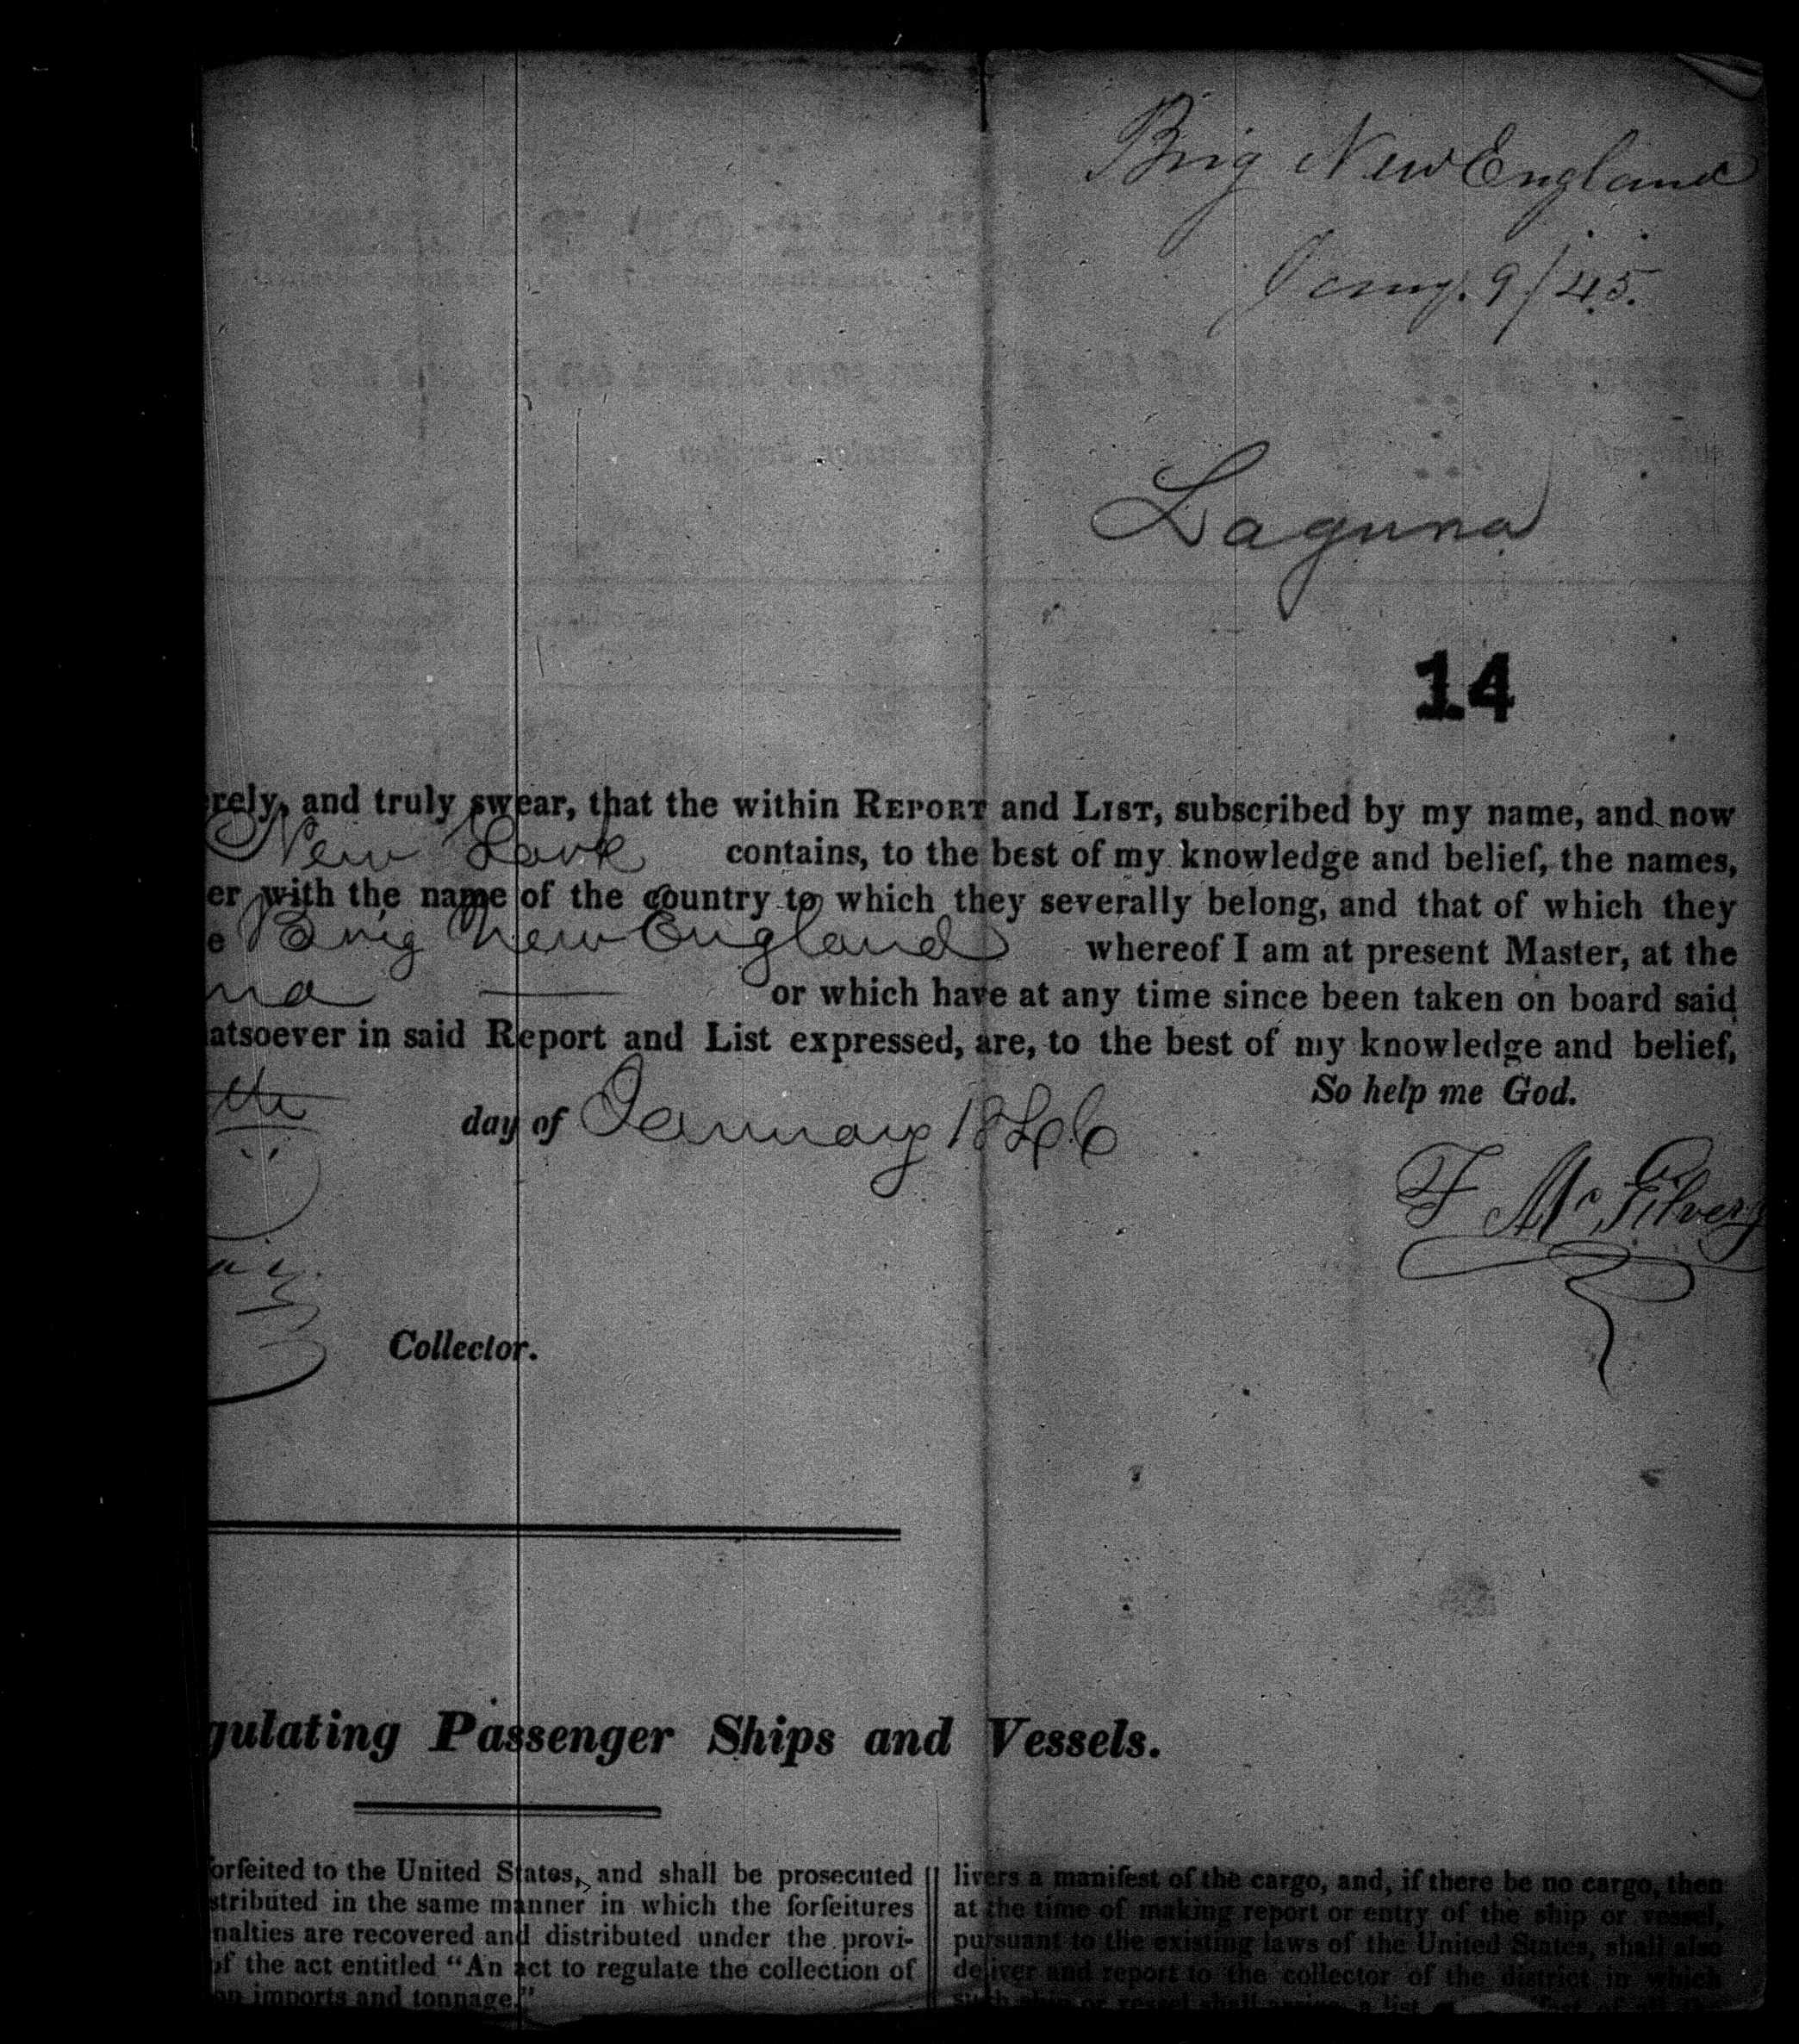 Brig New England
Jany. 9/45.
Laguna
14
rely, and truly swear, that the within REPORT and LIST, subscribed by my name, and now
New York contains, to the best of my knowledge and belief, the names,
er with the name of the country to which they severally belong, and that of which they
e Brig New England whereof I am at present Master, at the
na — or which have at any time since been taken on board said
atsoever in said Report and List expressed, are, to the best of my knowledge and belief,
So help me God.
th day of January 1846
F McGilvery
Collector.
gulating Passenger Ships and Vessels.
orfeited to the United States, and shall be prosecuted
stributed in the same manner in which the forfeitures
nalties are recovered and distributed under the provi-
of the act entitled "An act to regulate the collection of
on imports and tonnage."
livers a manifest of the cargo, and, if there be no cargo, then
at the time of making report or entry of the ship or vessel,
pursuant to the existing laws of the United States, shall also
deliver and report to the collector of the district in which
such ship or vessel shall